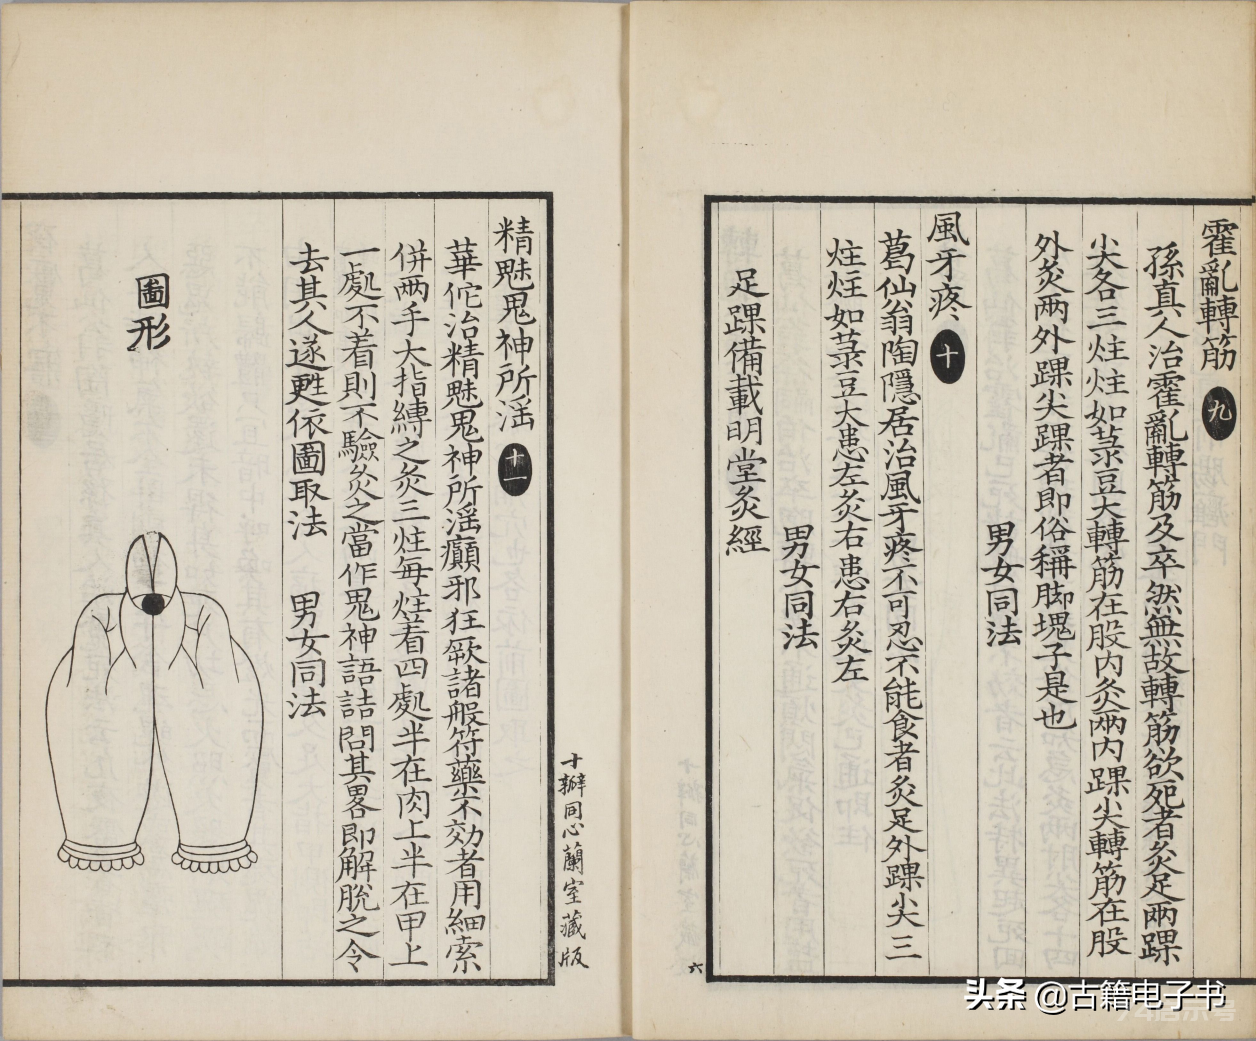 霍亂轉筋 九
孫真人治霍亂轉筋及卒然無故轉筋欲死者灸足兩踝
尖各三炷炷如菉豆大轉筋在股内灸兩内踝尖轉筋在股
外灸兩外踝尖踝者即俗稱脚塊子是也
男女同法
風牙疼 十
葛仙翁陶隱居治風牙疼不可忍不能食者灸足外踝尖三
炷炷如菉豆大患左灸右患右灸左
男女同法
足踝備載明堂灸經
六
十瓣同心蘭室藏版
精魅鬼神所滛 十一
華佗治精魅鬼神所滛癲邪狂厥諸般符藥不効者用細索
併兩手大指縛之灸三炷每炷着四處半在肉上半在甲上
一處不着則不驗灸之當作鬼神語詰問其畧即解脫之令
去其人遂甦依圖取法 男女同法
圖形
头条 @古籍电子书